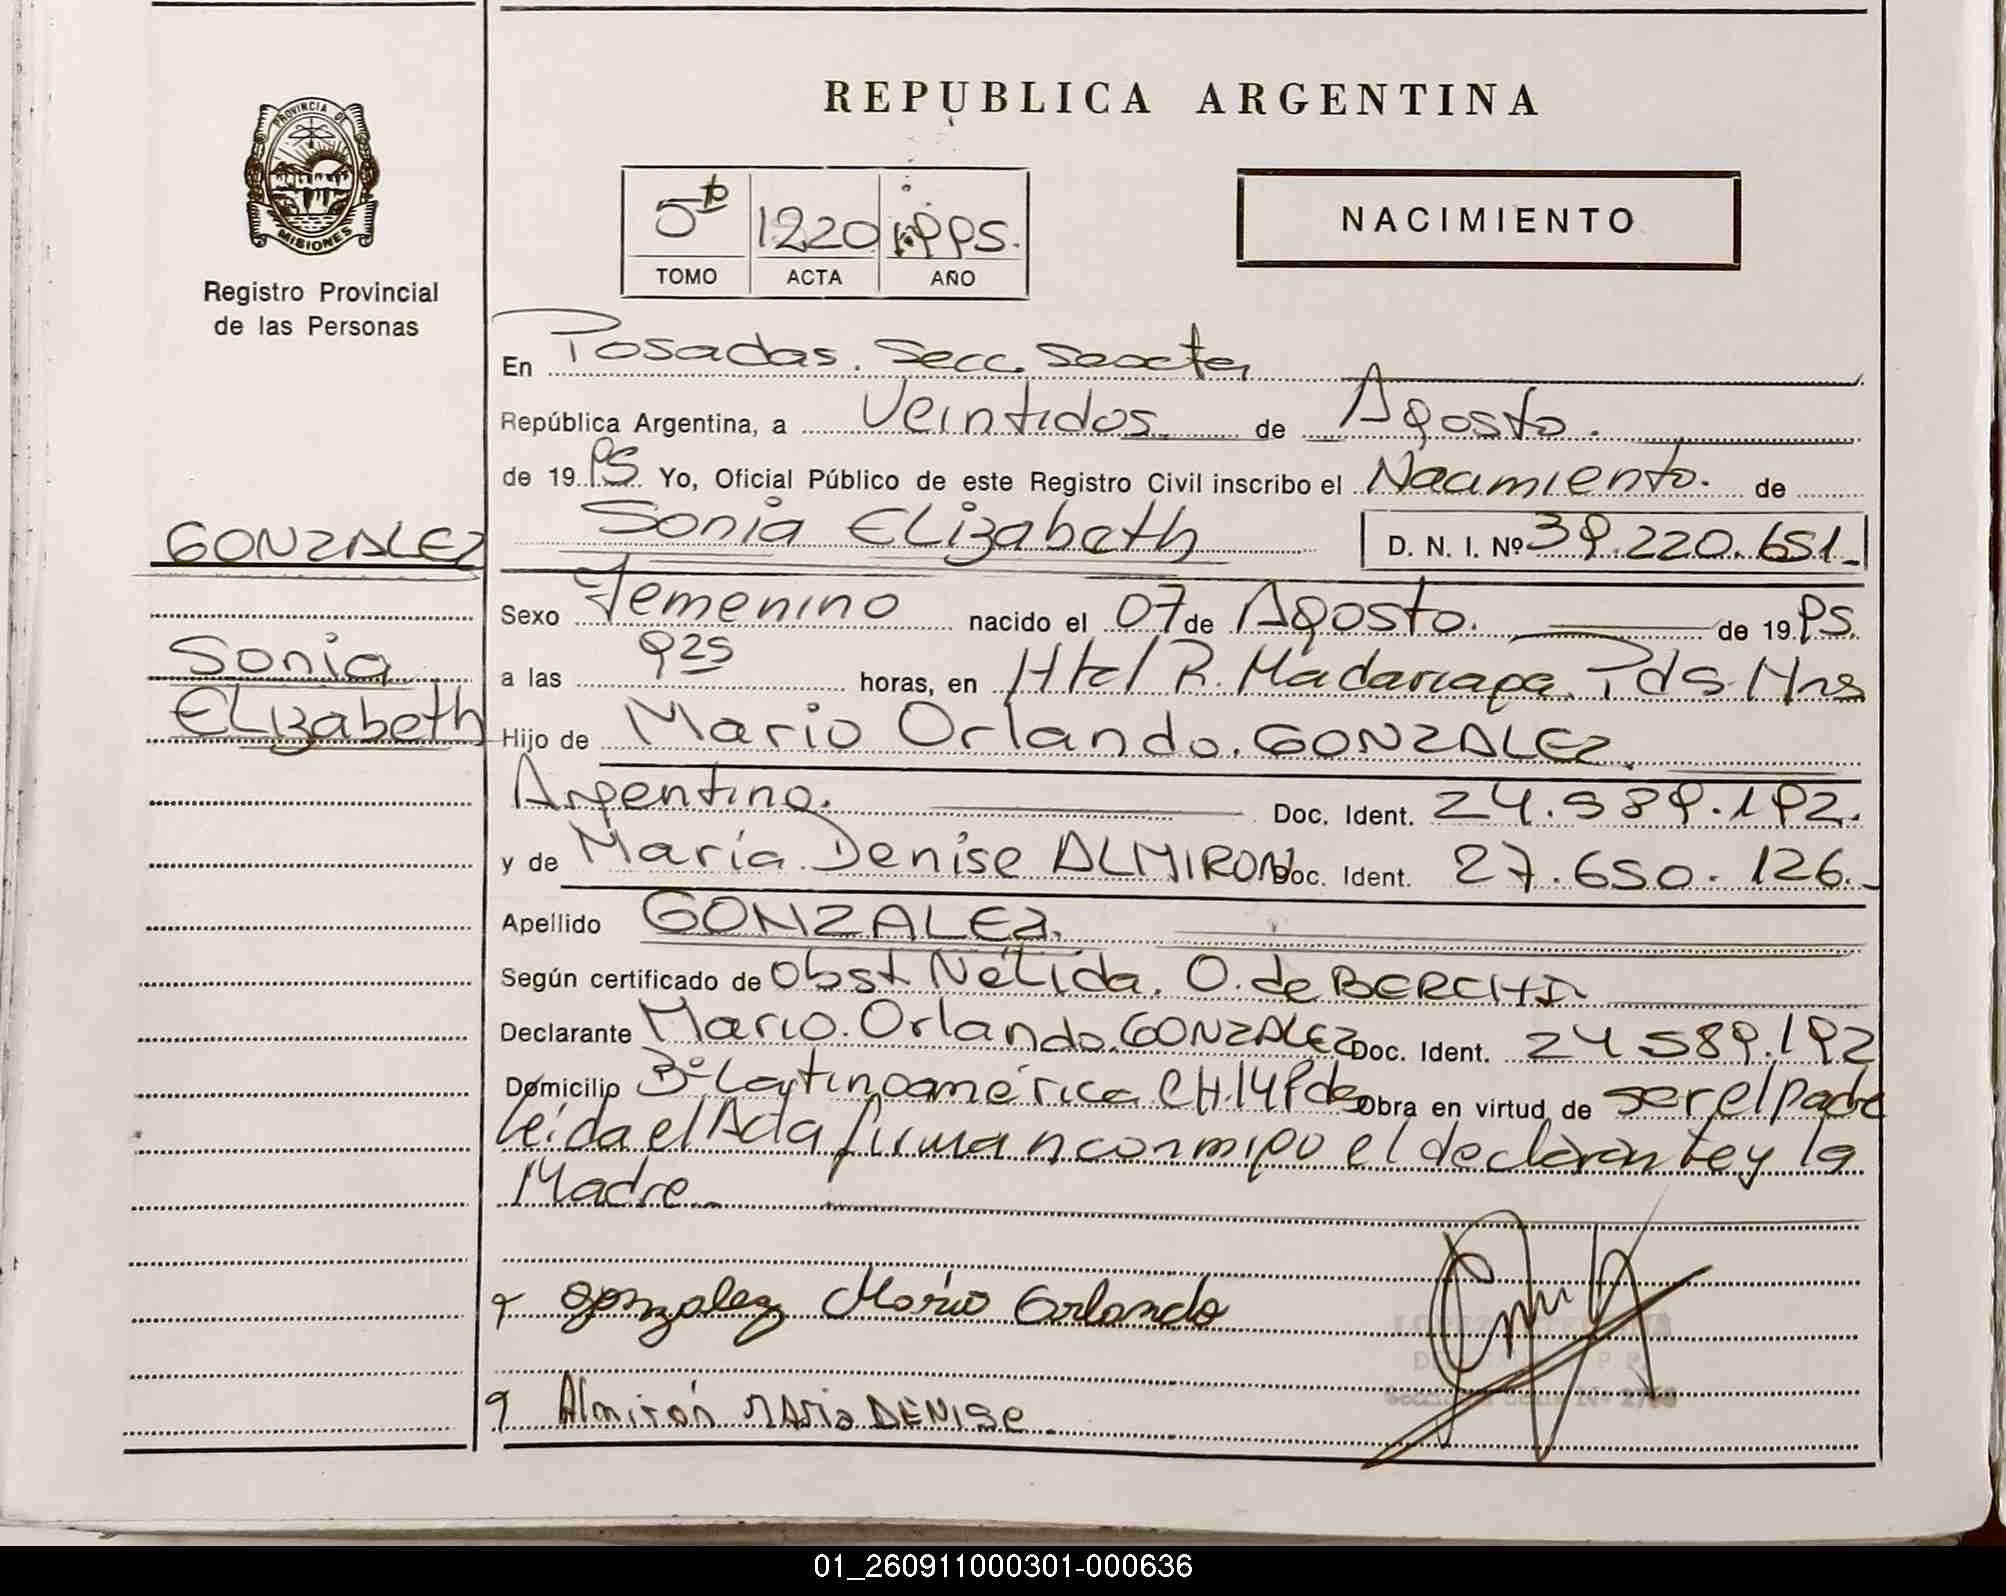 PROVINCIA DE
MISIONES
Registro Provincial
de las Personas
GONZALEZ
Sonia
Elizabeth
REPUBLICA ARGENTINA
5to 1220 1995.
TOMO ACTA AÑO
NACIMIENTO
En Posadas. Secc. Sexta
República Argentina, a Veintidos de Agosto.
de 1995 Yo, Oficial Público de este Registro Civil inscribo el Nacimiento. de
Sonia Elizabeth D. N. I. Nº 39.220.651.-
Sexo Femenino nacido el 07 de Agosto. de 1995.
a las 9 25 horas, en Htal R. Madariaga. Pds Mns
Hijo de Mario Orlando. GONZALEZ.
Argentino. Doc. Ident. 24.589.192.
y de María Denise ALMIRON Doc. Ident. 27.650.126.-
Apellido GONZALEZ.
Según certificado de Obst Nélida. O. de
Declarante Mario. Orlando. GONZALEZ Doc. Ident. 24 589.192
Domicilio Bº Latinoamérica CH.14 Pdas Obra en virtud de ser el padre
leída el Acta firman conmigo el declarante y la
Madre.
Gonzalez Mario Orlando
Almirón María DENISE
01_260911000301-000636